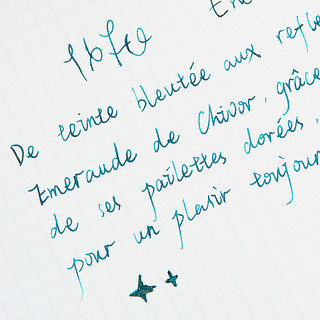 1670
De teinte bleutée aux
Emeraude de Chivor, grâce
de ses paillettes dorées,
pour un plaisir